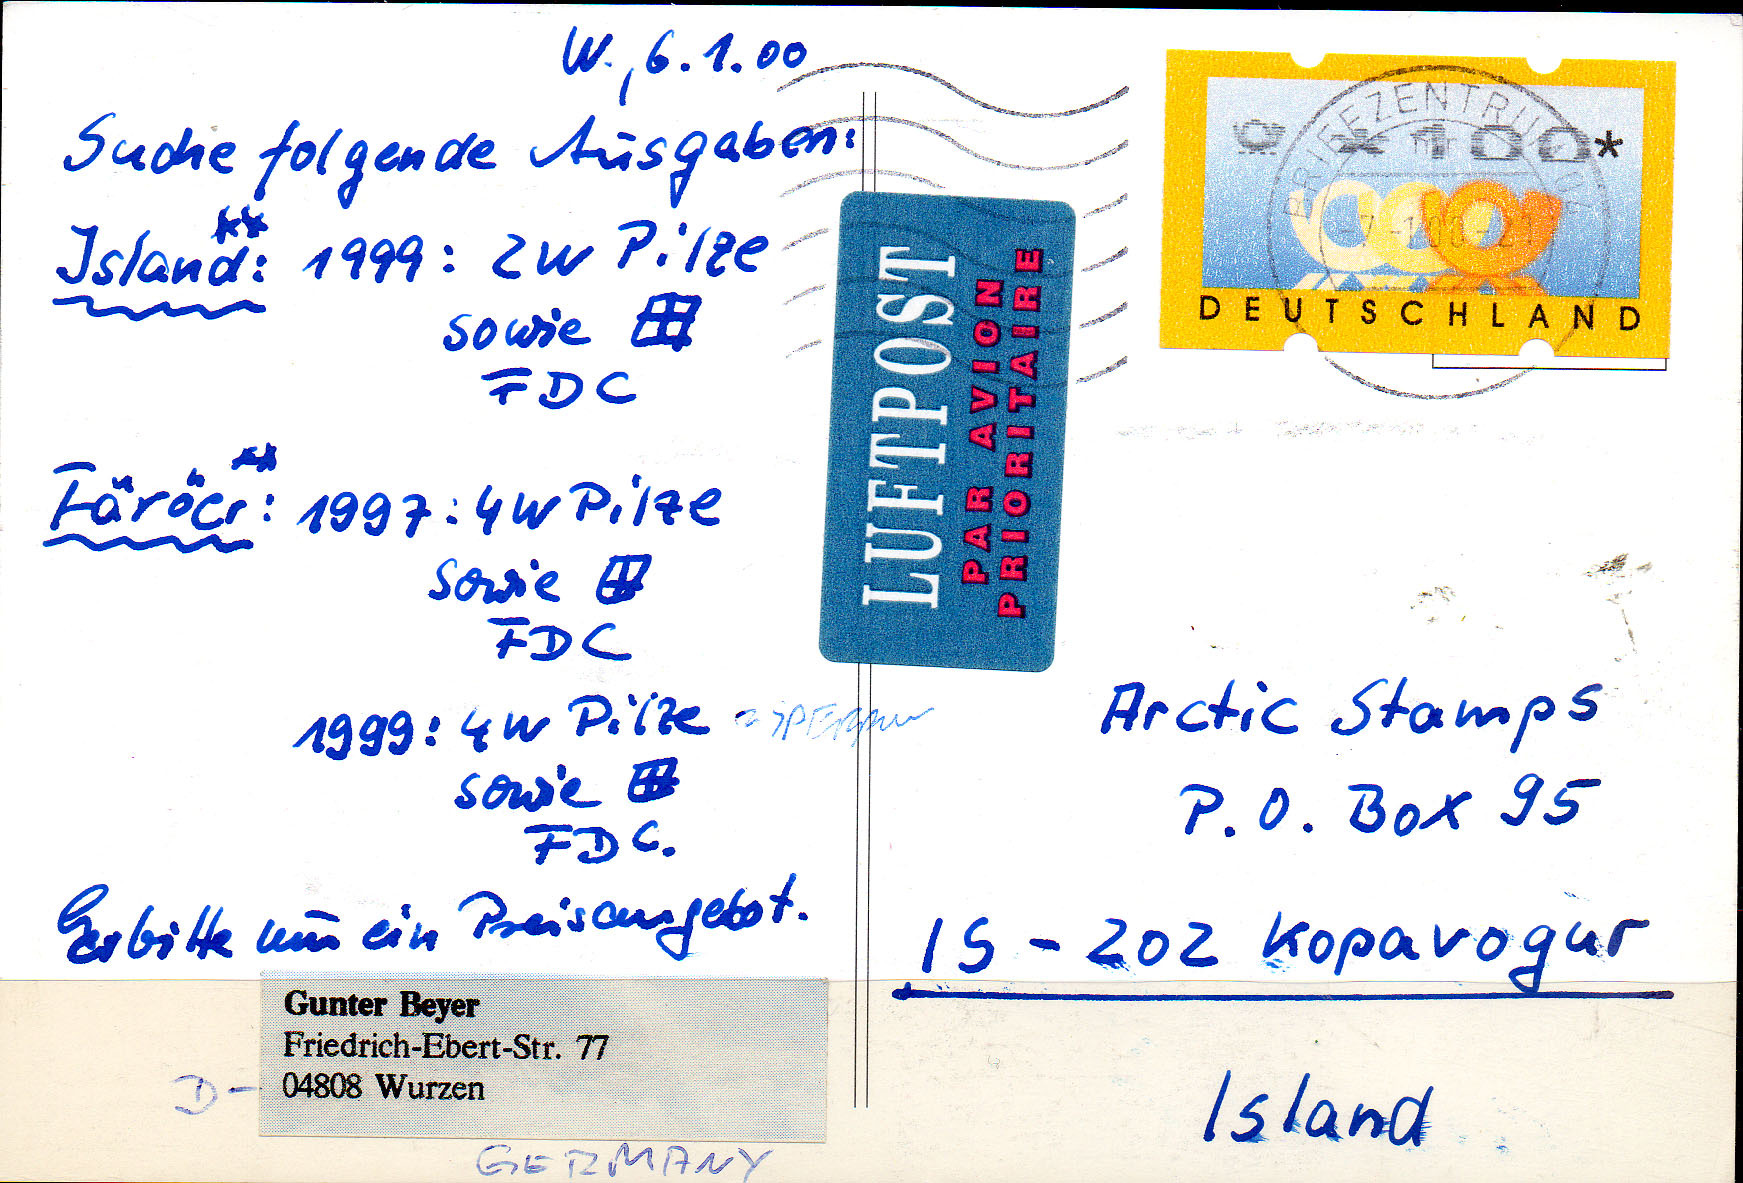 W., 6.1.00
Suche folgende Ausgaben:
Island**: 1999: 2W Pilze
sowie
FDC
Färöer**: 1997: 4W Pilze
sowie
FDC
1999: 4W Pilze
sowie
FDC.
Erbitte nun ein Preisangebot.
Gunter Beyer
Friedrich-Ebert-Str. 77
D- 04808 Wurzen
GERMANY
LUFTPOST
PAR AVION
PRIORITAIRE
BRIEFZENTRUM 04
* 100*
DEUTSCHLAND
Arctic Stamps
P.O. Box 95
IS - 202 Kopavogur
Island